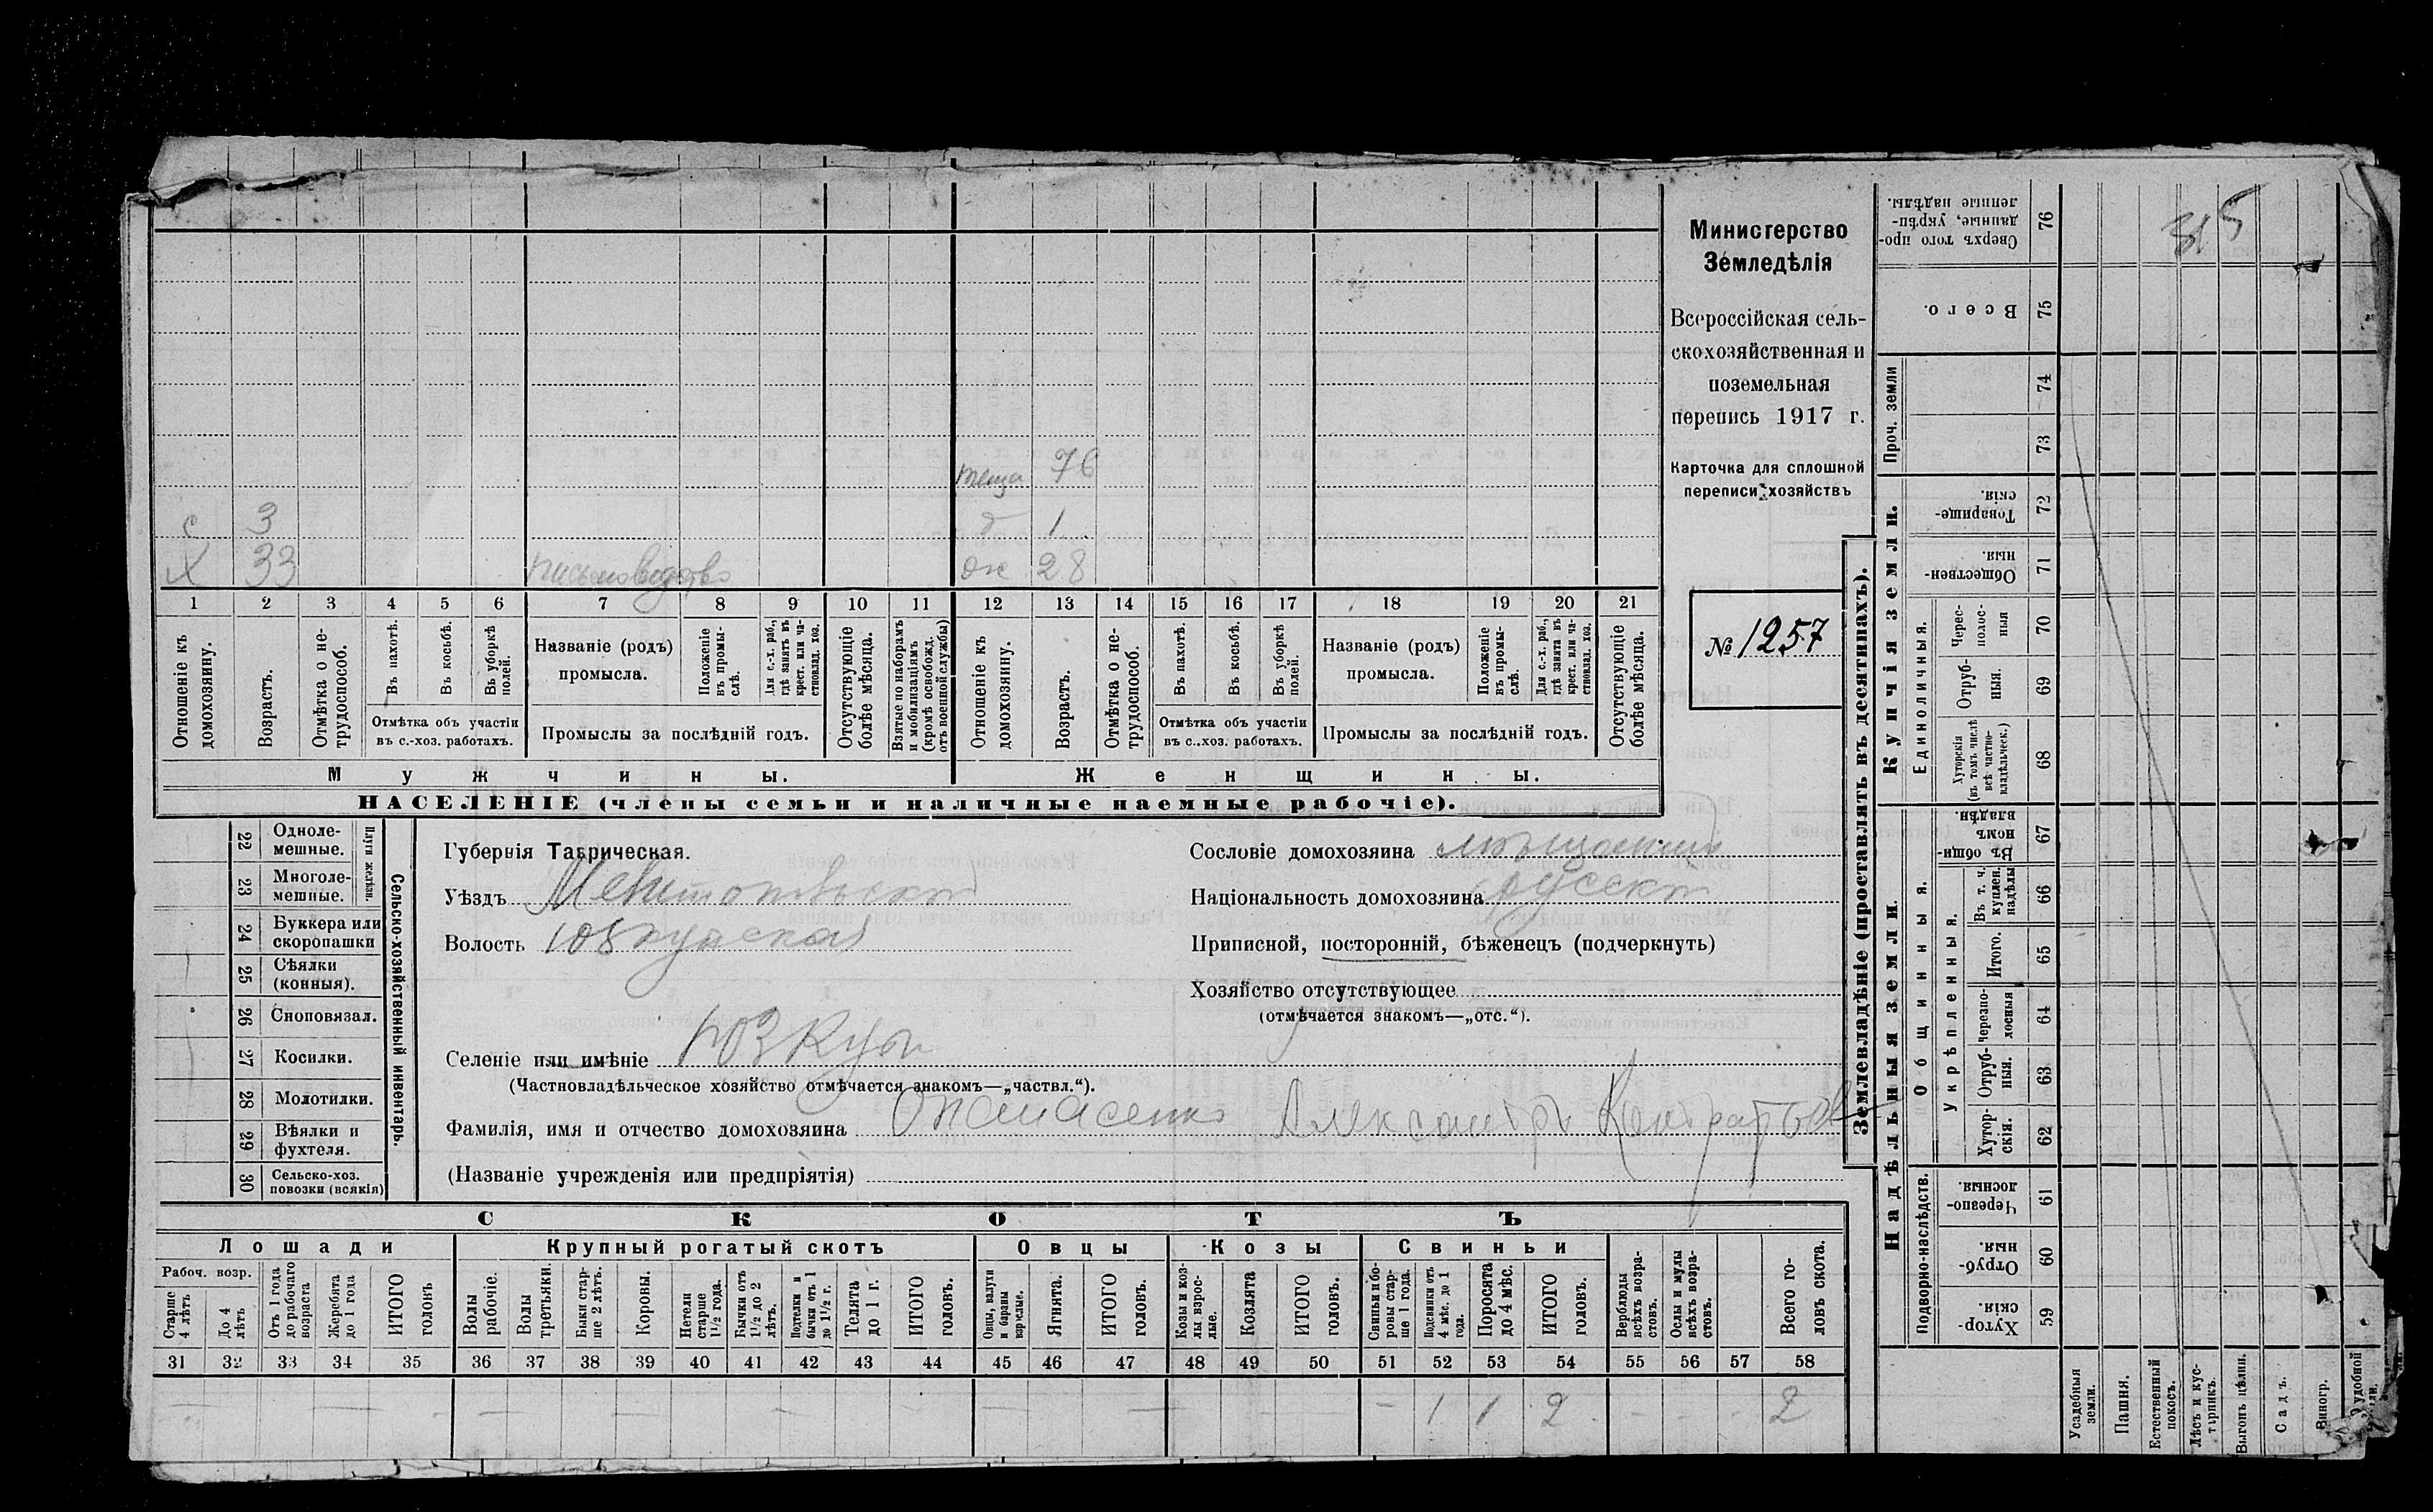 315
Министерство
Земледѣлія
Всероссійская сель-
скохозяйственная и
поземельная
перепись 1917 г.
Карточка для сплошной
переписи хозяйствъ
№ 1257
теща 76
с 3 д 1
х 33 письмоводство ж 28
1 2 3 4 5 6 7 8 9 10 11 12 13 14 15 16 17 18 19 20 21
Отношеніе къ домохозяину.
Возрастъ.
Отмѣтка о не-трудоспособ.
Въ пахотѣ.
Въ косьбѣ.
Въ уборкѣ полей.
Отмѣтка объ участіи
въ с.-хоз. работахъ.
Названіе (родъ)
промысла.
Положеніе въ промы-слѣ.
Для с.-х. раб., гдѣ занятъ въ крест. или ча-стновлад. хоз.
Промыслы за послѣдній годъ.
Отсутствующіе болѣе мѣсяца.
Взятые по наборамъ и мобилизаціямъ (кромѣ освобожд. отъ военной службы)
Отношеніе къ домохозяину.
Возрастъ.
Отмѣтка о не-трудоспособ.
Въ пахотѣ.
Въ косьбѣ.
Въ уборкѣ полей.
Отмѣтка объ участіи
въ с.-хоз. работахъ.
Названіе (родъ)
промысла.
Положеніе въ промы-слѣ.
Для с.-х. раб., гдѣ занята въ крест. или ча-стновлад. хоз.
Промыслы за послѣдній годъ.
Отсутствующіе болѣе мѣсяца.
Мужчины. Женщины.
НАСЕЛЕНІЕ (члены семьи и наличные наемные рабочіе).
Сельско-хозяйственный инвентарь.
Плуги желѣзн.
22 Одноле-мешные.
23 Многоле-мешные.
24 Буккера или скоропашки
25 Сѣялки (конныя).
26 Сноповязал.
27 Косилки.
28 Молотилки.
29 Вѣялки и фухтеля.
30 Сельско-хоз. повозки (всякія)
Губернія Таврическая.
Уѣздъ Мелитопольскій
Волость Юзкуйская
Селеніе или имѣніе Юзкуи
(Частновладѣльческое хозяйство отмѣчается знакомъ—„частвл.“).
Фамилія, имя и отчество домохозяина Опанасенко Александръ Кондратьев
(Названіе учрежденія или предпріятія)
Сословіе домохозяина мѣщанинъ
Національность домохозяина русскій
Приписной, посторонній, бѣженецъ (подчеркнуть)
Хозяйство отсутствующее
(отмѣчается знакомъ—„отс.“).
СКОТЪ
Лошади Крупный рогатый скотъ Овцы Козы Свиньи
Рабоч. возр.
Старше 4 лѣтъ
До 4 лѣтъ
Отъ 1 года до рабочаго возраста
Жеребята до 1 года
ИТОГО головъ
Волы рабочіе.
Волы третьяки.
Быки стар-ше 2 лѣтъ.
Коровы.
Нетели старше 1½ года.
Бычки отъ 1½ до 2 лѣтъ.
Подтелки и бычки отъ 1 до 1½ г.
Телята до 1 г.
ИТОГО головъ.
Овцы, валухи и бараны взрослые.
Ягнята.
ИТОГО головъ.
Козы и коз-лы взрос-лые.
Козлята
ИТОГО головъ.
Свиньи и бо-ровы стар-ше 1 года.
Подсвинки отъ 4 мѣс. до 1 года.
Поросята до 4 мѣс.
ИТОГО головъ.
Верблюды всѣхъ возра-стовъ.
Ослы и мулы всѣхъ возра-стовъ.
Всего го-ловъ скота.
31 32 33 34 35 36 37 38 39 40 41 42 43 44 45 46 47 48 49 50 51 52 53 54 55 56 57 58
— 1 1 2 - - - 2
Землевладѣніе (проставлять въ десятинахъ).
Купчія земли.
Надѣльныя земли.
Сверхъ того про-данные, укрѣп-ленные надѣлы. 76
Всего. 75
Проч. земли 74
73
Товарище-скія. 72
Обществен-ныя. 71
Единоличныя.
Черес-полос-ныя 70
Отруб-ныя. 69
Хуторскія (въ томъ числѣ всѣ частно-владѣльческ.) 68
Общинныя.
Въ общи-номъ владѣн. 67
Укрѣпленныя.
Въ т. ч. куплен. надѣлы 66
Итого. 65
Черезпо-лосныя 64
Отруб-ныя. 63
Хутор-скія. 62
Подворно-наслѣдств.
Черезпо-лосныя. 61
Отруб-ныя. 60
Хутор-скія. 59
Усадебныя земли.
Пашня.
Естественный покосъ.
Лѣсъ и кус-тарникъ.
Выгонъ цѣлин.
Садъ.
Виногр.